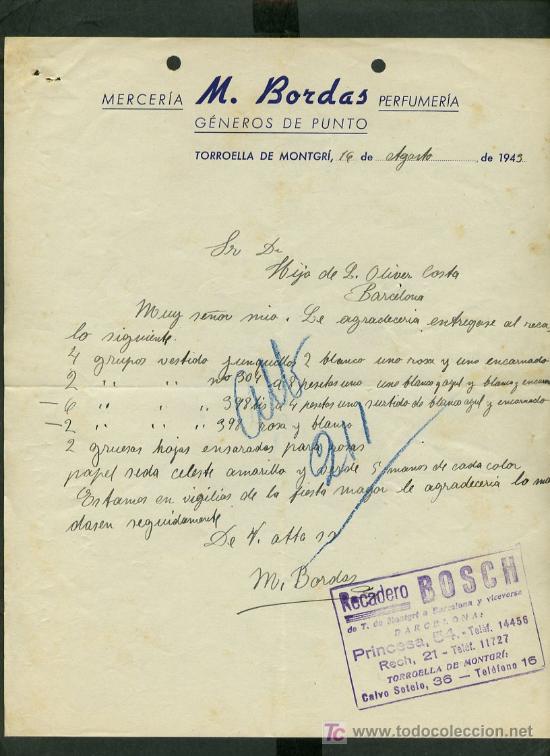 MERCERÍA M. Bordas PERFUMERÍA
GÉNEROS DE PUNTO
TORROELLA DE MONTGRÍ, 16 de Agosto de 1943
Sr Dn
Hijo de L. Oliver Costa
Barcelona
Muy señor mio. Le agradeceria entregase al reca
lo siguiente.
4 grupos vestido junquillo 2 blanco uno rosa y uno encarnado
2 " " nº 304 a 8 pesetas uno uno blanco azul y blanco, encarn
— 6 " " 398 a 4 pesetas uno surtido de blanco azul y encarnado
— 2 " " " 398 rosa y blanco
2 gruesas hojas enseradas para rosas
papel seda celeste amarillo y verde 5 manos de cada color
Estamos en vigilias de la fiesta mayor le agradeceria lo man
dasen seguidamente
De V. atto ss
M. Bordas
211
Recadero BOSCH
de T. de Montgrí a Barcelona y viceversa
BARCELONA:
Princesa, 54.-Teléf. 14456
Rech, 21 - Teléf. 11727
TORROELLA DE MONTGRÍ:
Calvo Sotelo, 36 — Teléfono 16
TC www.todocoleccion.net